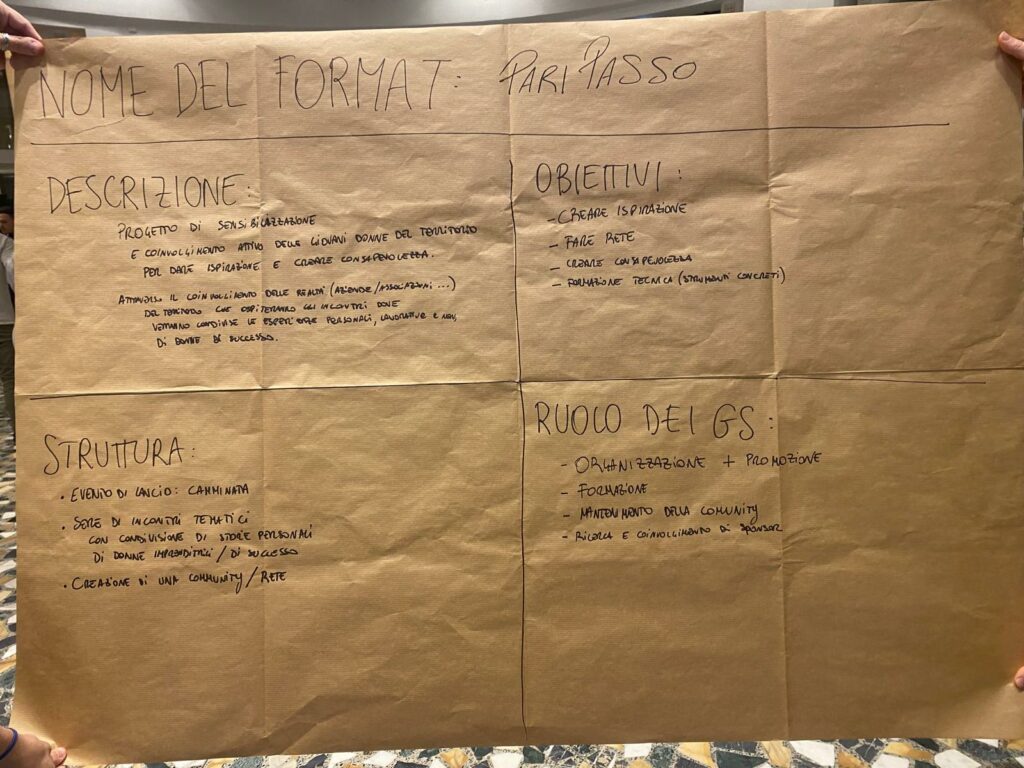 NOME DEL FORMAT: PARI PASSO
DESCRIZIONE:
PROGETTO DI SENSIBILIZZAZIONE
E COINVOLGIMENTO ATTIVO DELLE GIOVANI DONNE DEL TERRITORIO
PER DARE ISPIRAZIONE E CREARE CONSAPEVOLEZZA.
ATTRAVERSO IL COINVOLGIMENTO DELLE REALTÀ (AZIENDE/ASSOCIAZIONI ...)
DEL TERRITORIO CHE OSPITERANNO GLI INCONTRI DOVE
VERRANNO CONDIVISE LE ESPERIENZE PERSONALI, LAVORATIVE E NON,
DI DONNE DI SUCCESSO.
OBIETTIVI:
- CREARE ISPIRAZIONE
- FARE RETE
- CREARE CONSAPEVOLEZZA
- FORMAZIONE TECNICA (STRUMENTI CONCRETI)
STRUTTURA:
• EVENTO DI LANCIO: CAMMINATA
• SERIE DI INCONTRI TEMATICI
CON CONDIVISIONE DI STORIE PERSONALI
DI DONNE IMPRENDITRICI / DI SUCCESSO
• CREAZIONE DI UNA COMMUNITY / RETE
RUOLO DEI GS:
- ORGANIZZAZIONE + PROMOZIONE
- FORMAZIONE
- MANTENIMENTO DELLA COMUNITY
- RICERCA E COINVOLGIMENTO DI SPONSOR